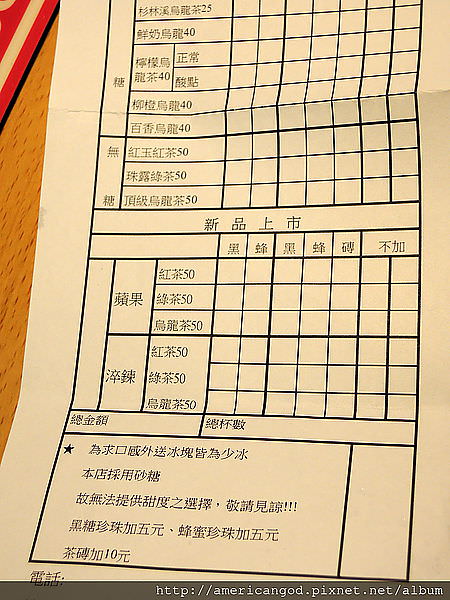 杉林溪烏龍茶25
鮮奶烏龍40
檸檬烏龍茶40 正常
酸點
糖
柳橙烏龍40
百香烏龍40
無糖
紅玉紅茶50
珠露綠茶50
頂級烏龍茶50
新品上市
黑 蜂 黑 蜂 磚 不加
蘋果
紅茶50
綠茶50
烏龍茶50
淬鍊
紅茶50
綠茶50
烏龍茶50
總金額 總杯數
★ 為求口感外送冰塊皆為少冰
本店採用砂糖
故無法提供甜度之選擇，敬請見諒!!!
黑糖珍珠加五元、蜂蜜珍珠加五元
茶磚加10元
電話:
http://americangod.pixnet.net/album